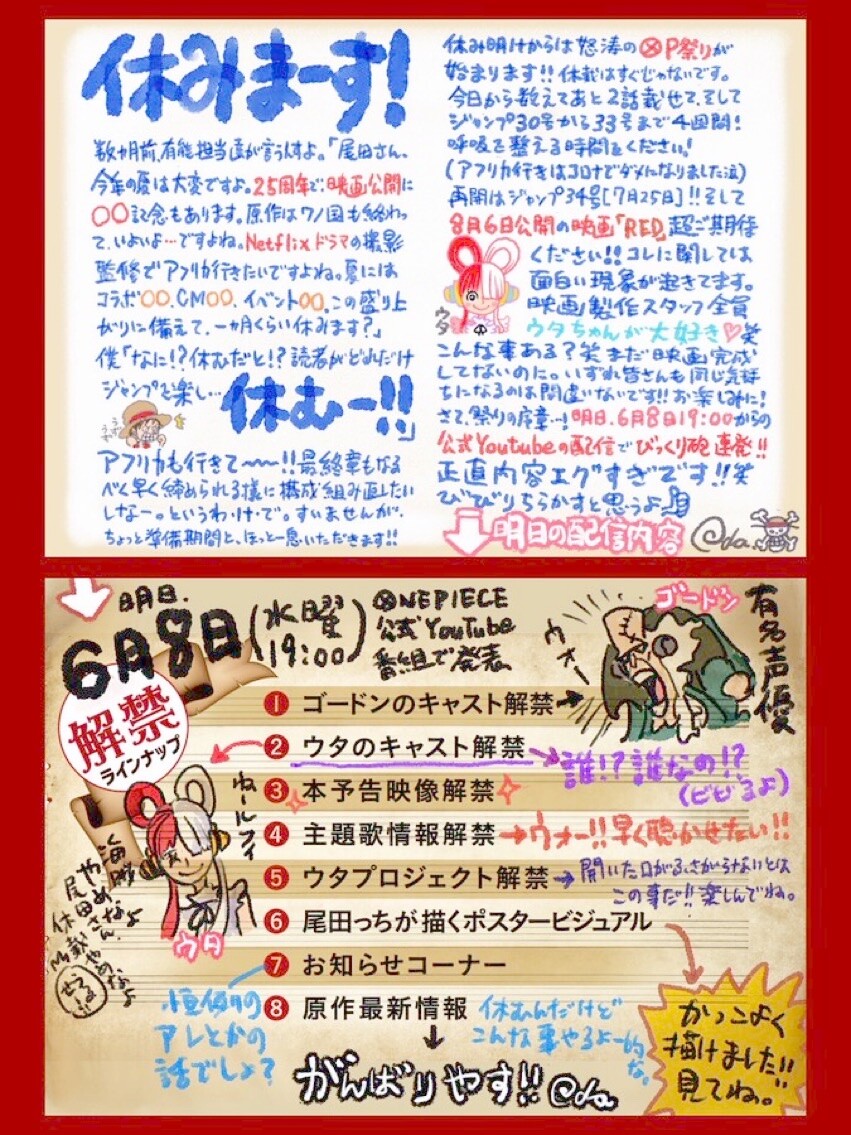 休みまーす!
数ヵ月前、有能担当直が言うんすよ。「尾田さん、
今年の夏は大変ですよ。25周年で、映画公開に
〇〇記念もあります。原作はワノ国も終わっ
て、いよいよ…ですよね。Netflixドラマの撮影
監修でアフリカ行きたいですよね。夏には
コラボ〇〇、CM〇〇、イベント〇〇、この盛り上
がりに備えて、一ヵ月くらい休みます?」
僕「なに!?休むだと!?読者がどれだけ
ジャンプを楽し…休むー!!」
うずうず
アフリカも行きて〜〜!!最終章もなる
べく早く締められる様に構成組み直したい
しなー。というわけで。すいませんが、
ちょっと準備期間と、ほっと一息いただきます!!
休み明けからは怒涛のⓍP祭りが
始まります!!休載はすぐじゃないです。
今日から数えてあと2話載せて、そして
ジャンプ30号から33号まで4週間!
呼吸を整える時間をください!
(アフリカ行きはコロナでダメになりました泣)
再開はジャンプ34号[7月25日]!!そして
8月6日公開の映画「RED」超ご期待
ください!!コレに関しては
面白い現象が起きてます。
映画製作スタッフ全員
ウタちゃんが大好き♡笑
ウタ
こんな事ある?笑 まだ映画完成
してないのに。いずれ皆さんも同じ気持
ちになるのは間違いないです!!お楽しみに!
さて、祭りの序章…!明日、6月8日19:00からの
公式Youtubeの配信でびっくり砲連発!!
正直内容エグすぎです!!笑
びびりちらかすと思うよ
明日の配信内容
Oda.
明日、
6月8日(水曜19:00)
ⓍNEPIECE
公式YouTube
番組で発表
ウォー
ゴードン
有名声優
解禁
ラインナップ
1 ゴードンのキャスト解禁→
2 ウタのキャスト解禁
誰!?誰なの!?
(ビビるよ)
3 本予告映像解禁
4 主題歌情報解禁→ウォー!!早く聴かせたい!!
5 ウタプロジェクト解禁→開いた口がふさがらないとは
この事だ!!楽しんでね。
6 尾田っちが描くポスタービジュアル
かっこよく
描けました!!
見てね。
7 お知らせコーナー
恒例の
アレとかの
話でしょ?
8 原作最新情報
休むんだけど
こんな事やるよー的な。
ねールフィ
ウタ
海賊やめなよ
尾田さん
休載やめなよ
がんばりやす!! Oda